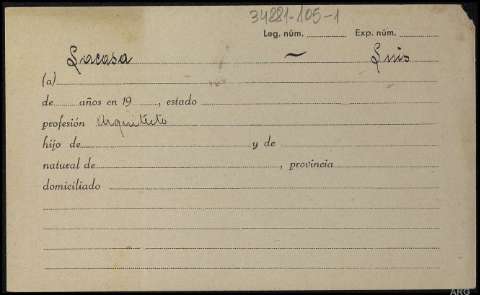 34221-105-1
Leg. núm. Exp. núm.
Lacasa ~ Luis
(a)
de años en 19 , estado
profesión Arquitecto
hijo de y de
natural de , provincia
domiciliado
ARG